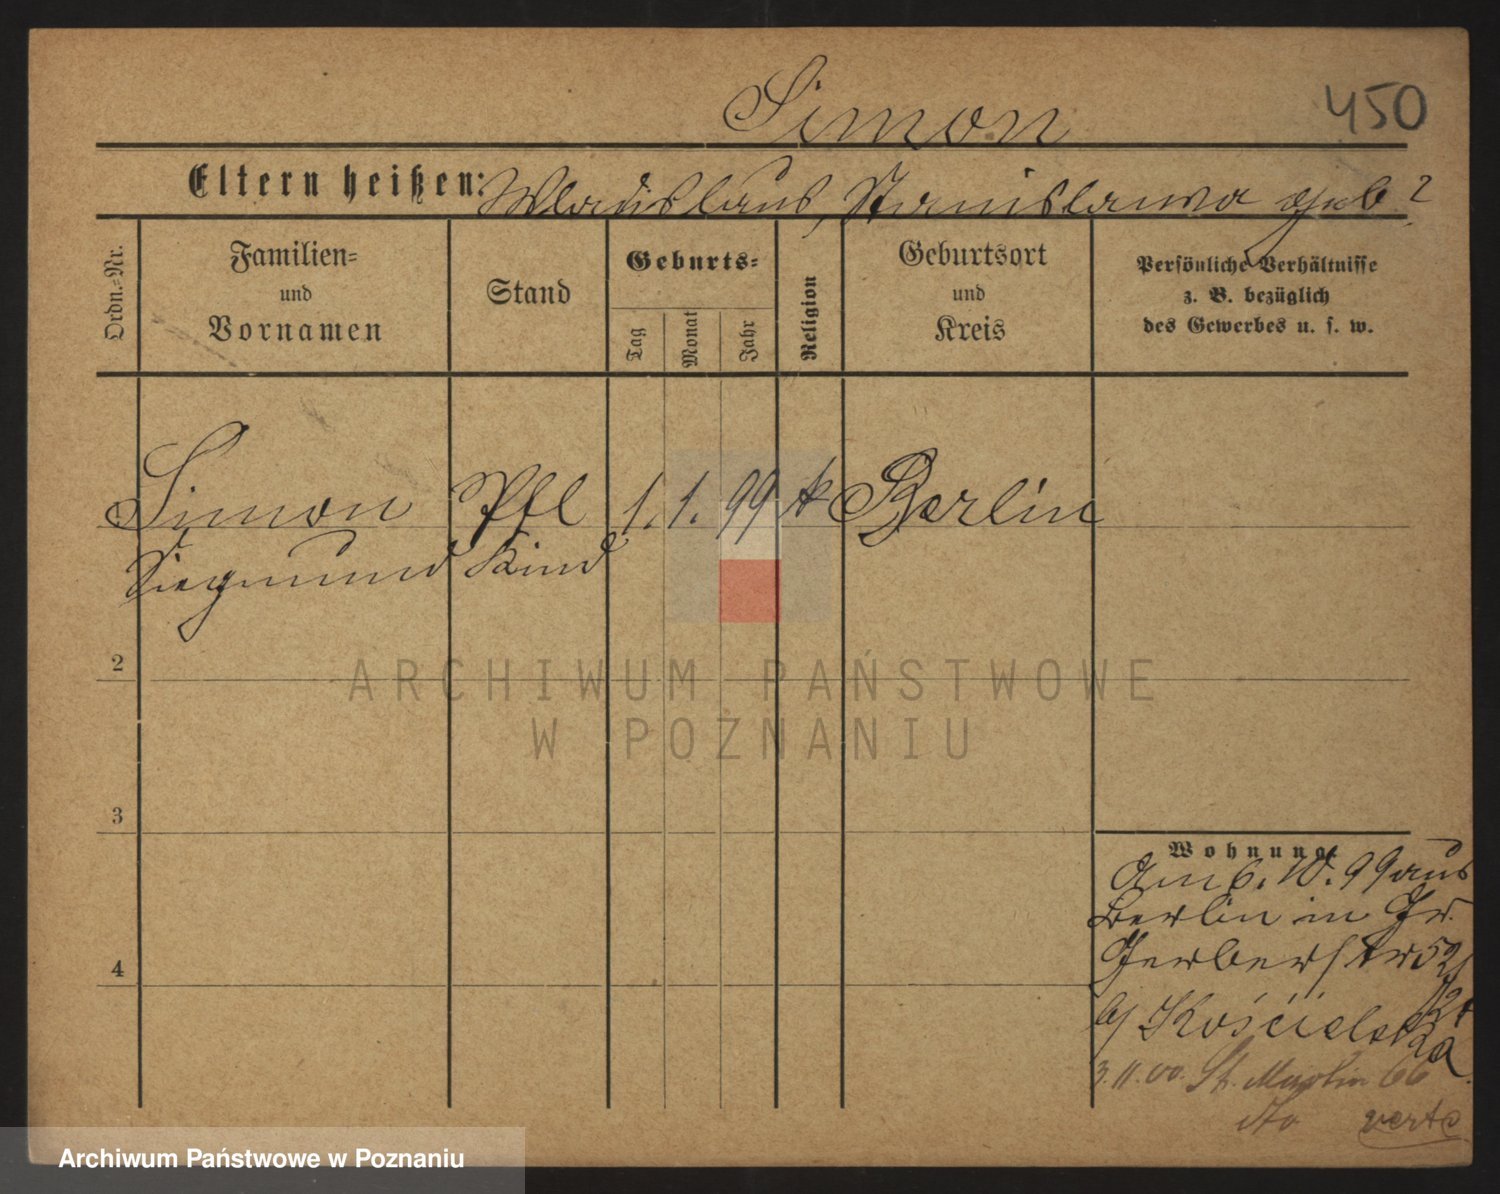 Simon
450
Eltern heißen: Wladislaus, Stanislawa geb?
Ordn.-Nr.
Familien- und Vornamen
Stand
Geburts-
Tag
Monat
Jahr
Religion
Geburtsort und Kreis
Persönliche Verhältnisse
z. B. bezüglich
des Gewerbes u. s. w.
1 Simon Pfl 1. 1. 99 k Berlin
Siegmund Kind
2
ARCHIWUM PAŃSTWOWE
W POZNANIU
3
4
Wohnung
Am 6. 10. 99 aus
Berlin in Gr.
Gerberstr 52
b/ Kościelska
3.11.00. St. Martin 66
verte
Archiwum Państwowe w Poznaniu